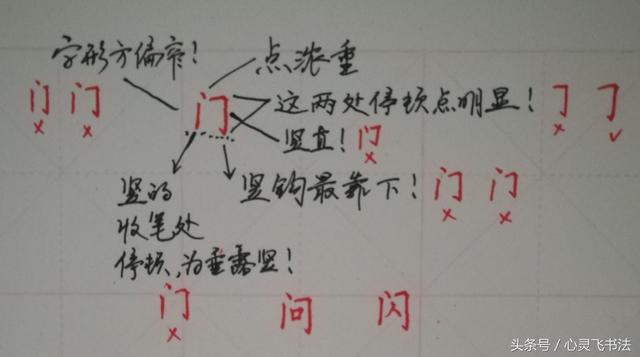 字形方偏窄!
点浓重
门 门 门 这两处停顿点明显! ㇆ ㇆
竖直! 门
竖的 竖钩最靠下! 门 门
收笔处
停顿,为垂露竖!
门 问 闪
头条号 / 心灵飞书法